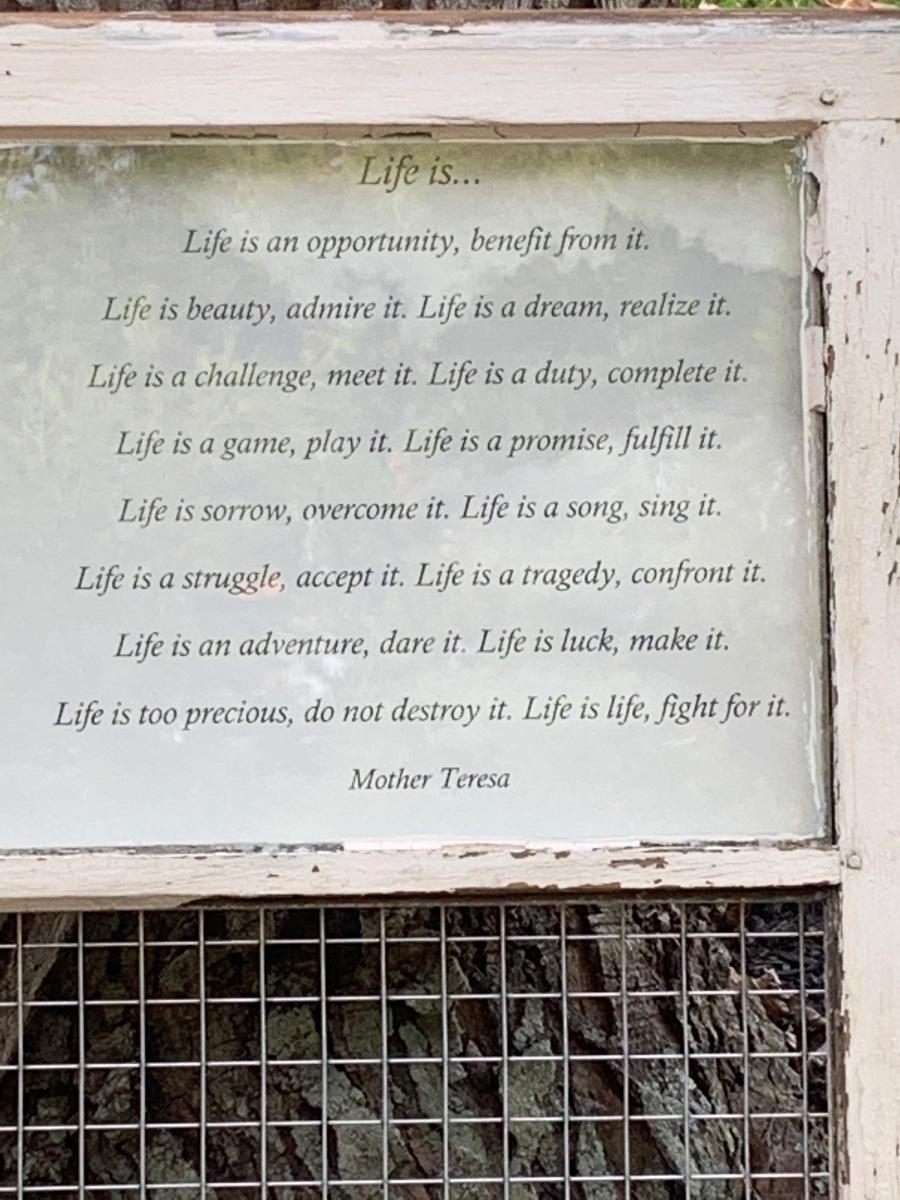 Life is...
Life is an opportunity, benefit from it.
Life is beauty, admire it. Life is a dream, realize it.
Life is a challenge, meet it. Life is a duty, complete it.
Life is a game, play it. Life is a promise, fulfill it.
Life is sorrow, overcome it. Life is a song, sing it.
Life is a struggle, accept it. Life is a tragedy, confront it.
Life is an adventure, dare it. Life is luck, make it.
Life is too precious, do not destroy it. Life is life, fight for it.
Mother Teresa